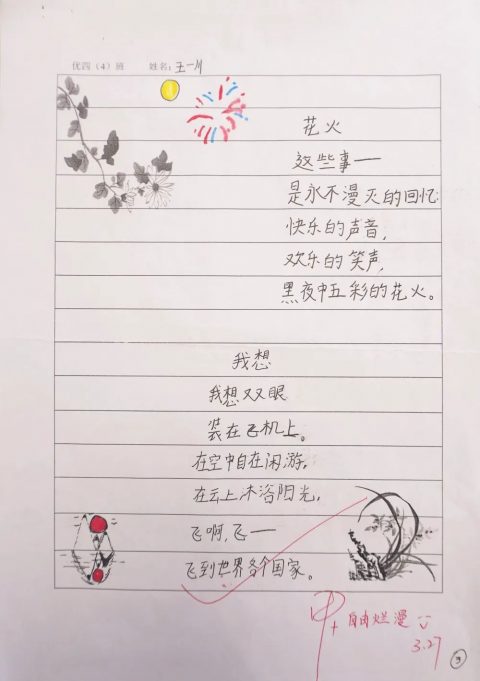 优四（4）班 姓名：王一川
花火
这些事一
是永不漫灭的回忆：
快乐的声音，
欢乐的笑声，
黑夜中五彩的花火。
我想
我想双眼
装在飞机上。
在空中自在闲游，
在云上沐浴阳光，
飞啊，飞一
飞到世界各个国家。
甲+ 自由烂漫
3.27